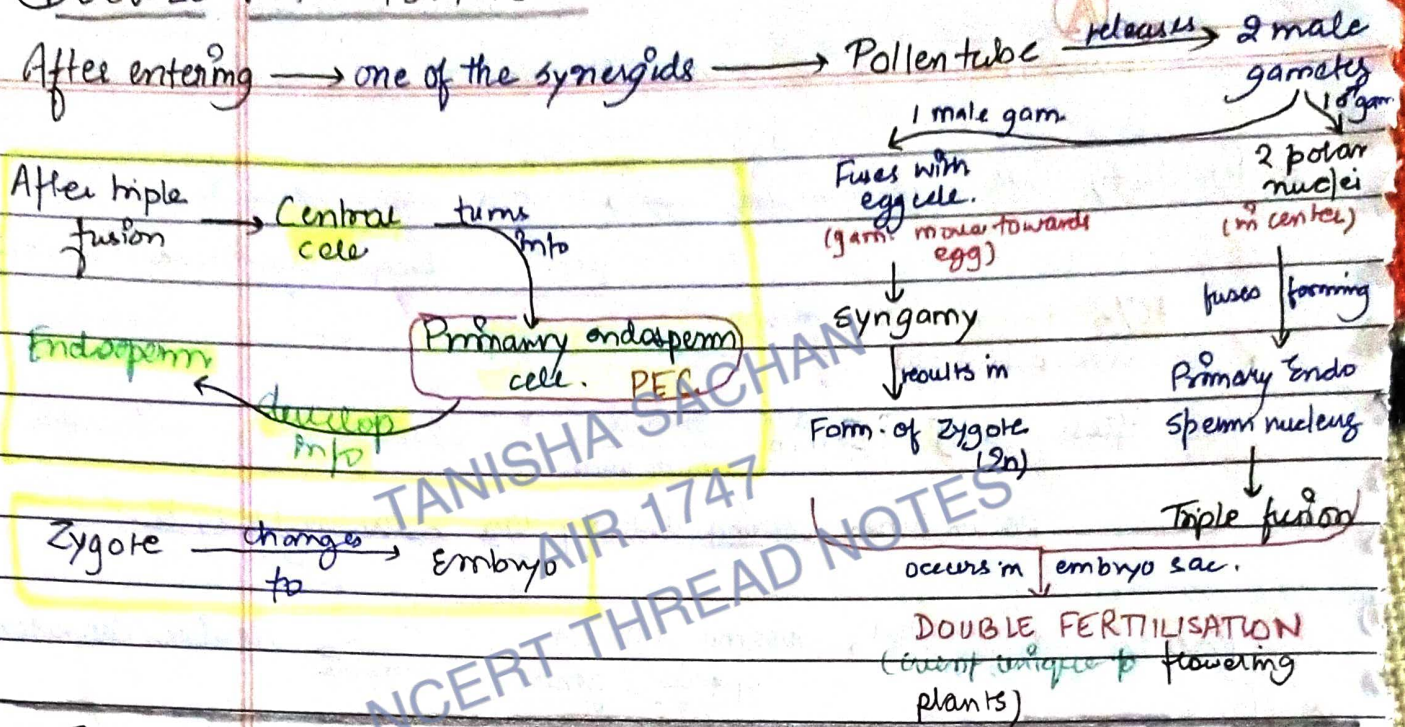 After entering → one of the synergids → Pollen tube releases → 2 male
gametes
1 male gam.
1 ♂ gam.
Fuses with
egg cell.
(gam. move towards
egg)
↓
Syngamy
↓ results in
Form. of Zygote
(2n)
2 polar
nuclei
(in center)
fuses forming
Primary Endo
sperm nucleus
↓
Triple fusion
occurs in embryo sac.
DOUBLE FERTILISATION
(event unique to flowering
plants)
After triple
fusion → Central
cell
turns
into
Primanry endosperm
cell. PEC
develop
into
Endosperm
Zygote changes
to → Embryo
TANISHA SACHAN
AIR 1747
NCERT THREAD NOTES